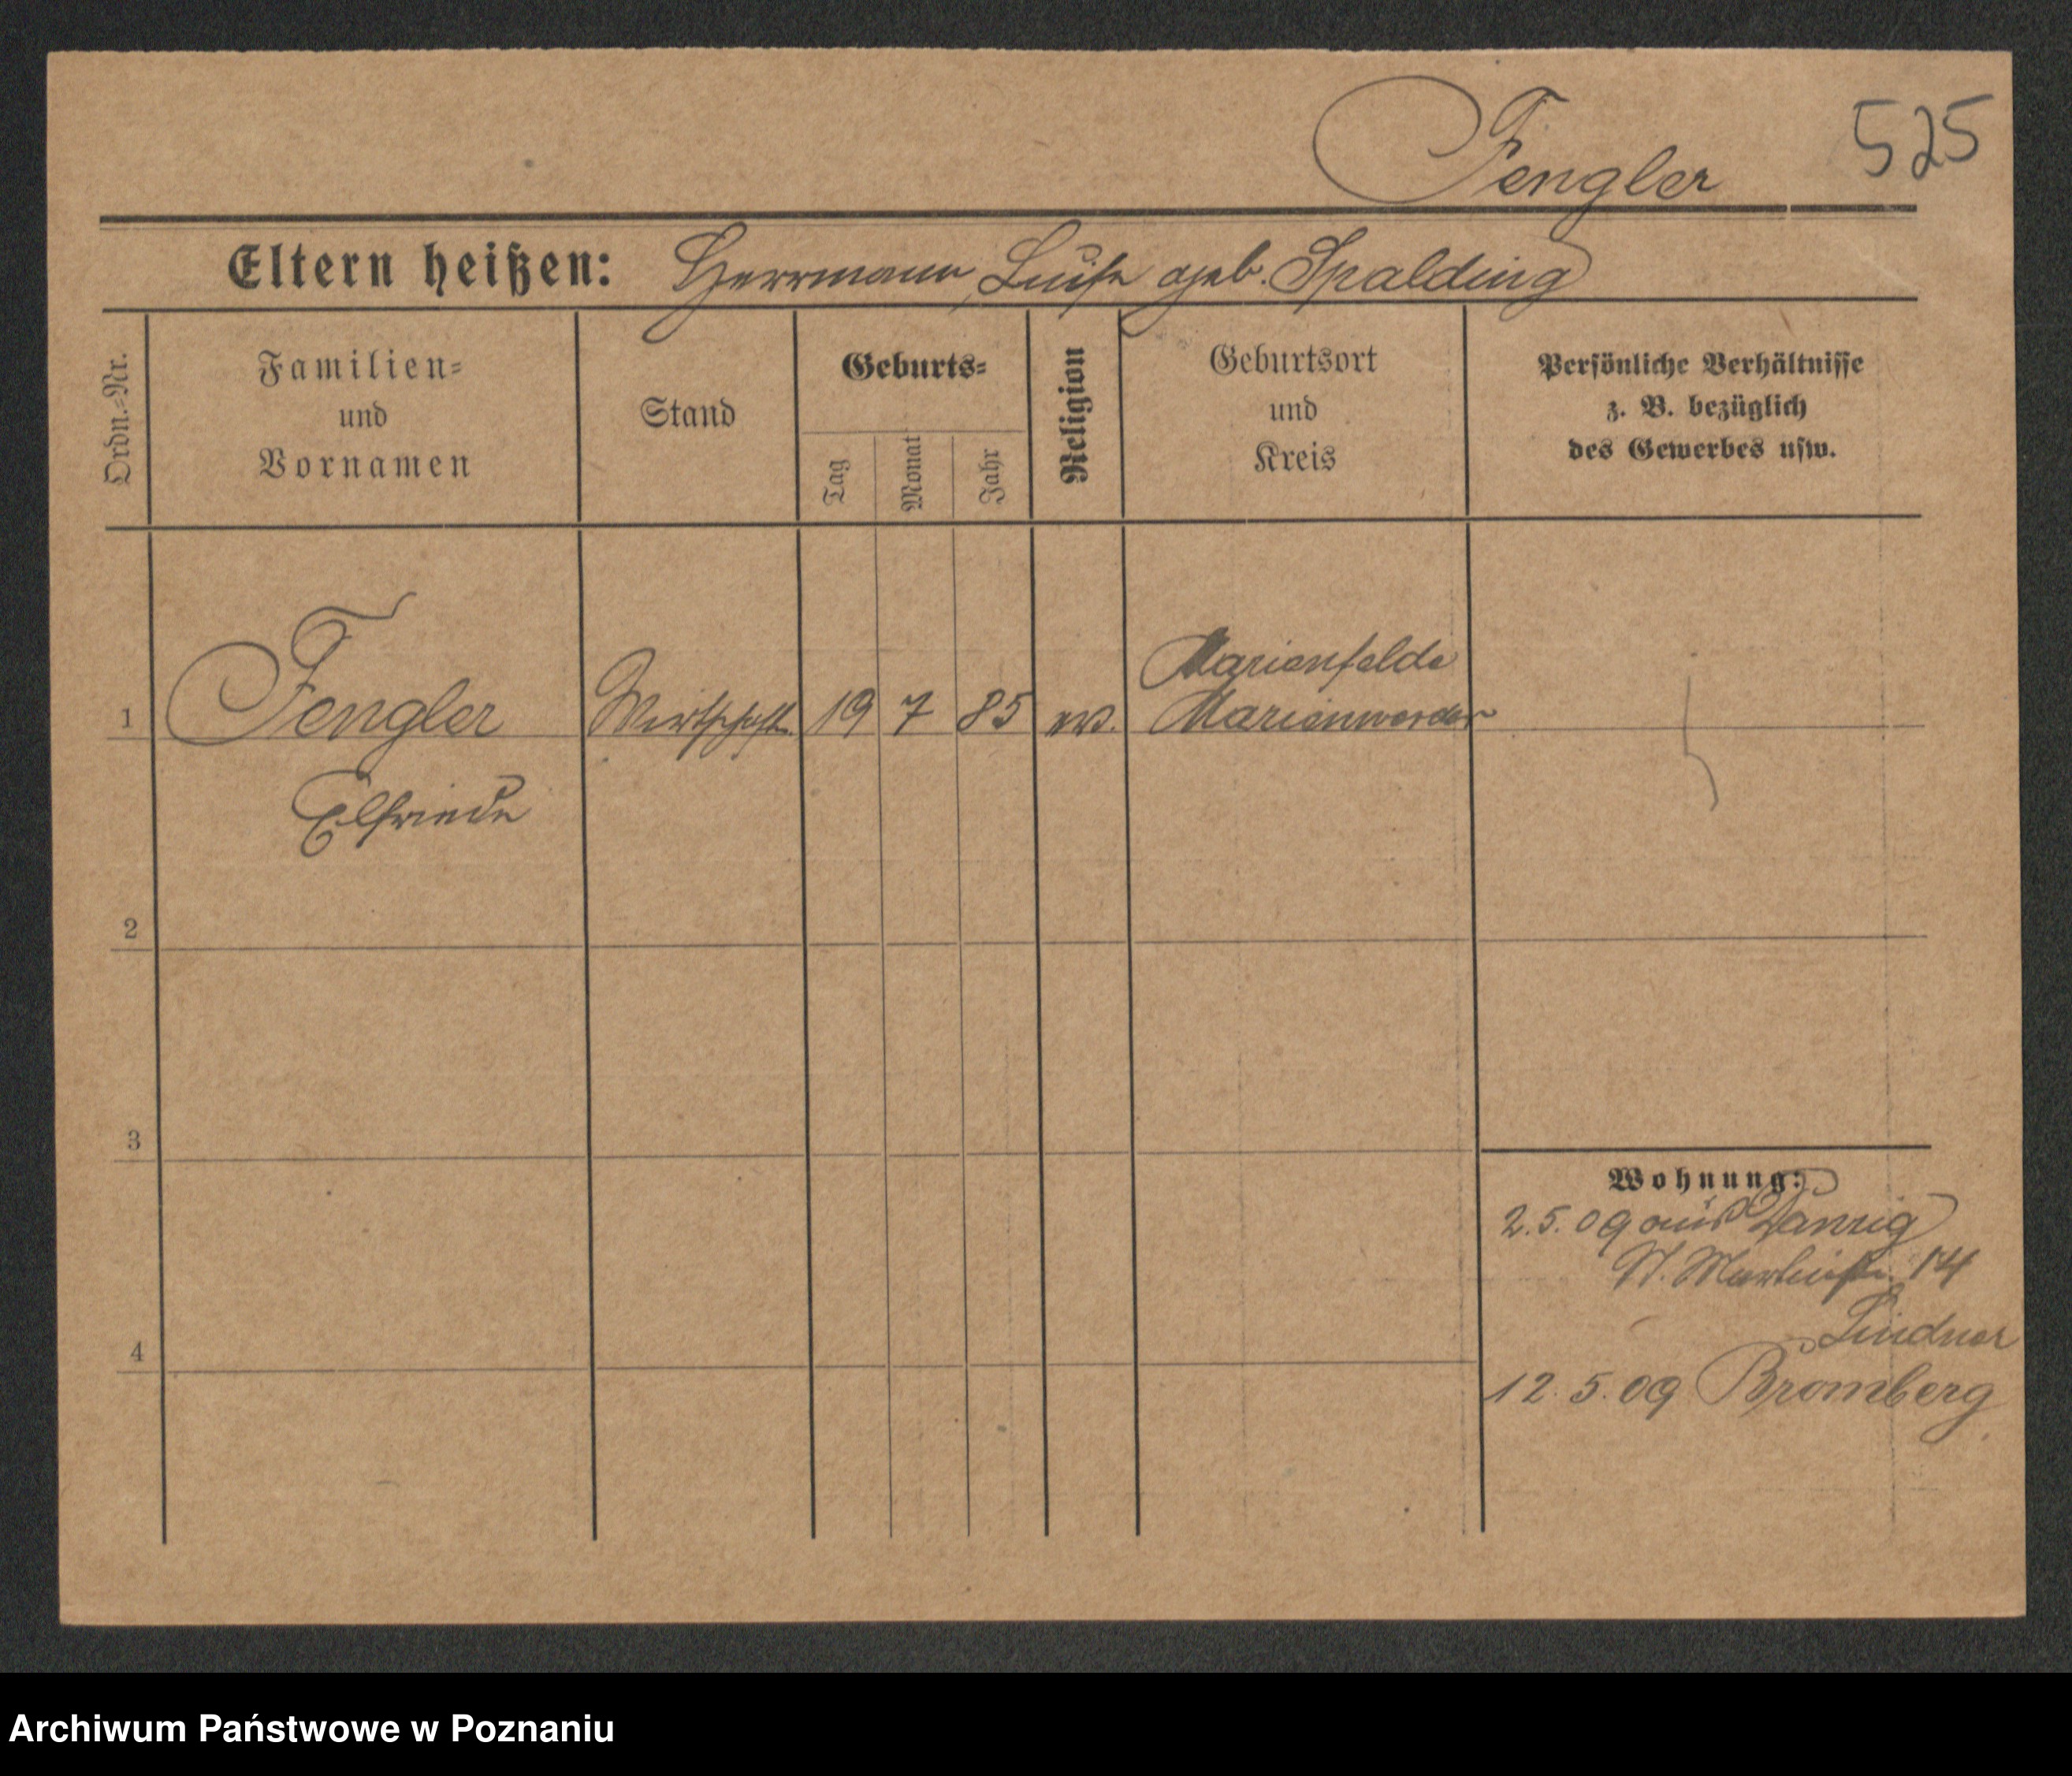 Fengler
525
Eltern heißen: Herrmann, Luise geb. Spalding
Ordn.=Nr.
Familien=
und
Vornamen
Stand
Geburts=
Tag
Monat
Jahr
Religion
Geburtsort
und
Kreis
Persönliche Verhältnisse
z. B. bezüglich
des Gewerbes usw.
1 Fengler Wirtschaft. 19 7 85 ev. Marienfelde
Marienwerder
Elfriede
2
3
4
Wohnung:
2.5.09 aus Danzig
St. Martinstr. 14
Lindner
12.5.09 Bromberg
Archiwum Państwowe w Poznaniu